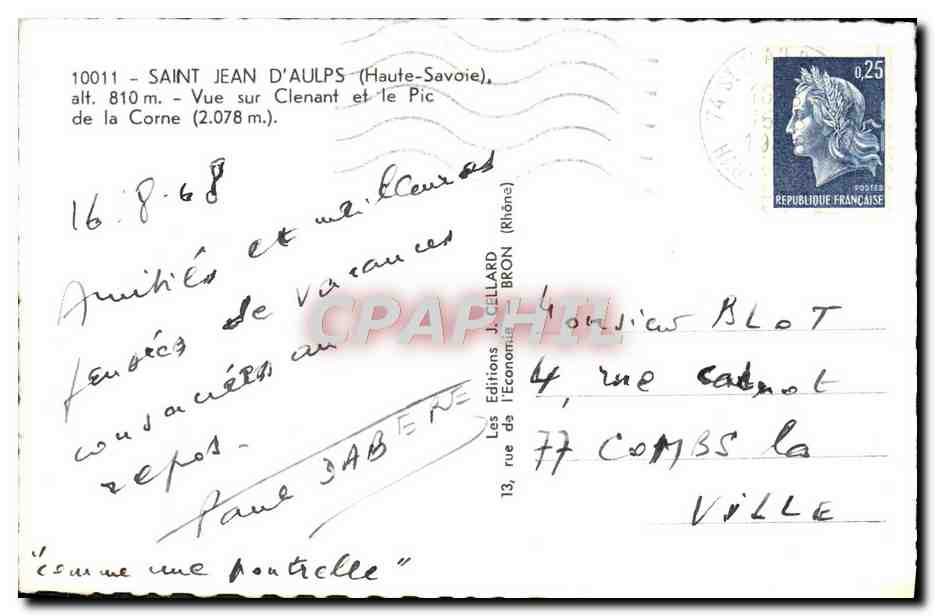 10011 - SAINT JEAN D'AULPS (Haute-Savoie),
alt. 810 m. - Vue sur Clenant et le Pic
de la Corne (2.078 m.).
0,25
POSTES
REPUBLIQUE FRANÇAISE
16.8.68
Amitiés et meilleures
pensées de vacances
consacrées au
repos-
Paul DABENE
"comme une poutrelle"
Les Editions J. CELLARD
13, rue de l'Economie - BRON (Rhône)
Monsieur BLOT
4, rue Carnot
77 COMBS la
VILLE
CPAPHIL